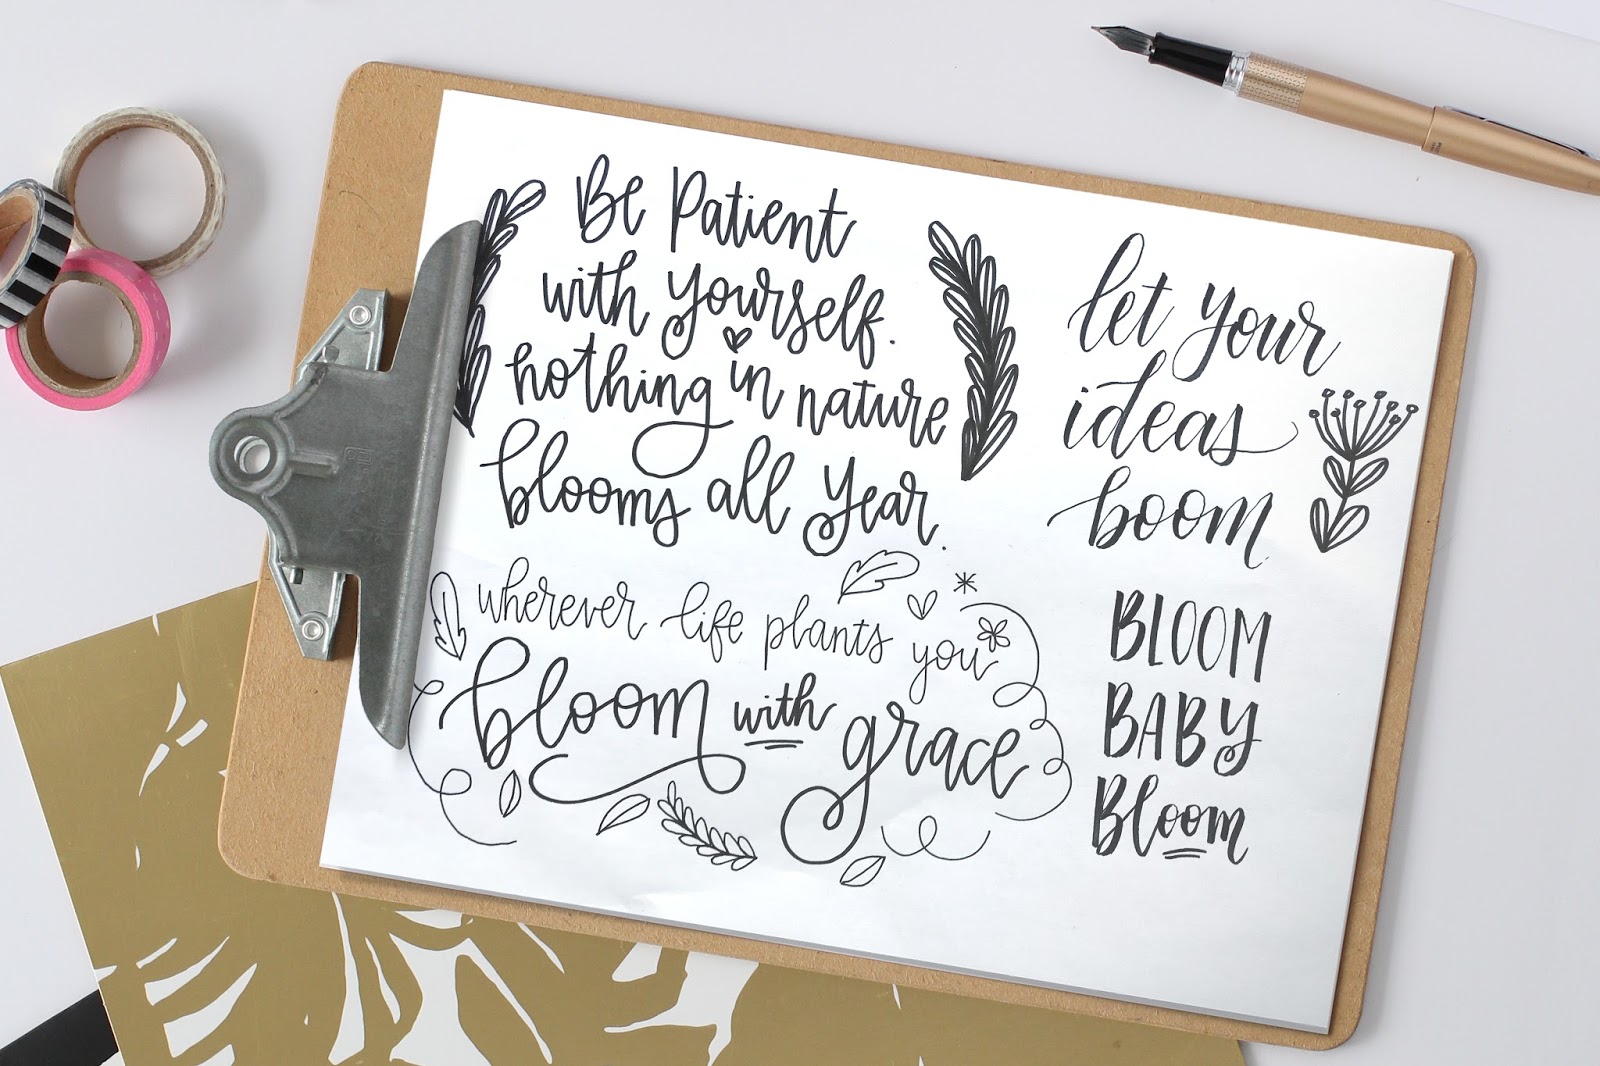 Be Patient
with yourself.
nothing in nature
blooms all year.
wherever life plants you
bloom with grace
let your
ideas
boom.
BLOOM
BABY
Bloom